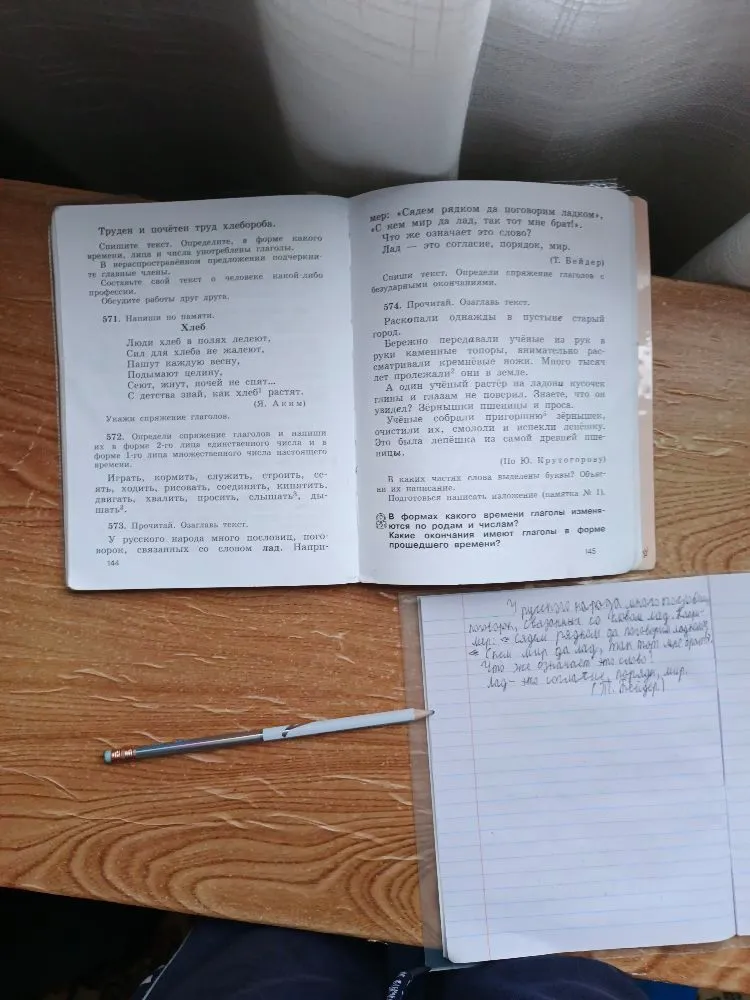 Труден и почётен труд хлебороба.
Спишите текст. Определите, в форме какого
времени, лица и числа употреблены глаголы.
В нераспространённом предложении подчеркни-
те главные члены.
Составьте свой текст о человеке какой-либо
профессии.
Обсудите работы друг друга.
571. Напиши по памяти.
Хлеб
Люди хлеб в полях лелеют,
Сил для хлеба не жалеют,
Пашут каждую весну,
Подымают целину,
Сеют, жнут, ночей не спят...
С детства знай, как хлеб¹ растят.
(Я. Аким)
Укажи спряжение глаголов.
572. Определи спряжение глаголов и напиши
их в форме 2-го лица единственного числа и в
форме 1-го лица множественного числа настоящего
времени.
Играть, кормить, служить, строить, се-
ять, ходить, рисовать, соединять, кипятить,
двигать, хвалить, просить, слышать³, ды-
шать³.
573. Прочитай. Озаглавь текст.
У русского народа много пословиц, пого-
ворок, связанных со словом лад. Напри-
144
мер: «Сядем рядком да поговорим ладком»,
«С кем мир да лад, так тот мне брат!».
Что же означает это слово?
Лад — это согласие, порядок, мир.
(Т. Бейдер)
Спиши текст. Определи спряжение глаголов с
безударными окончаниями.
574. Прочитай. Озаглавь текст.
Раскопали однажды в пустыне старый
город.
Бережно передавали учёные из рук в
руки каменные топоры, внимательно рас-
сматривали кремнёвые ножи. Много тысяч
лет пролежали² они в земле.
А один учёный растёр на ладони кусочек
глины и глазам не поверил. Знаете, что он
увидел? Зёрнышки пшеницы и проса.
Учёные собрали пригоршню³ зёрнышек,
очистили их, смололи и испекли лепёшку.
Это была лепёшка из самой древней пше-
ницы.
(По Ю. Крутогорову)
В каких частях слова выделены буквы? Объяс-
ни их написание.
Подготовься написать изложение (памятка № 1).
В формах какого времени глаголы изменя-
ются по родам и числам?
Какие окончания имеют глаголы в форме
прошедшего времени?
145
У русского народа много пословиц
поговорок, связанных со словом лад. Напри-
мер: « Сядем рядком да поговорим ладком»,
« С кем мир да лад, так тот мне брат!».
Что же означает это слово?
Лад - это согласие, порядк, мир.
(Т. Бейдер)